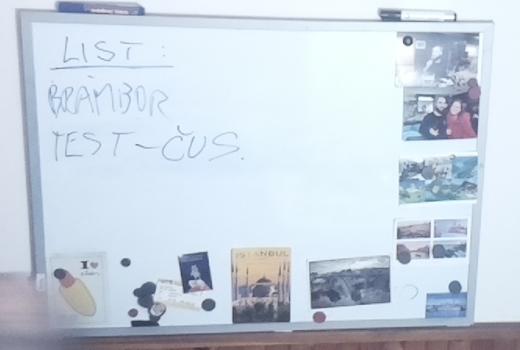 LIST:
BRAMBOR
TEST-ČUS.
I ❤
ISTANBUL